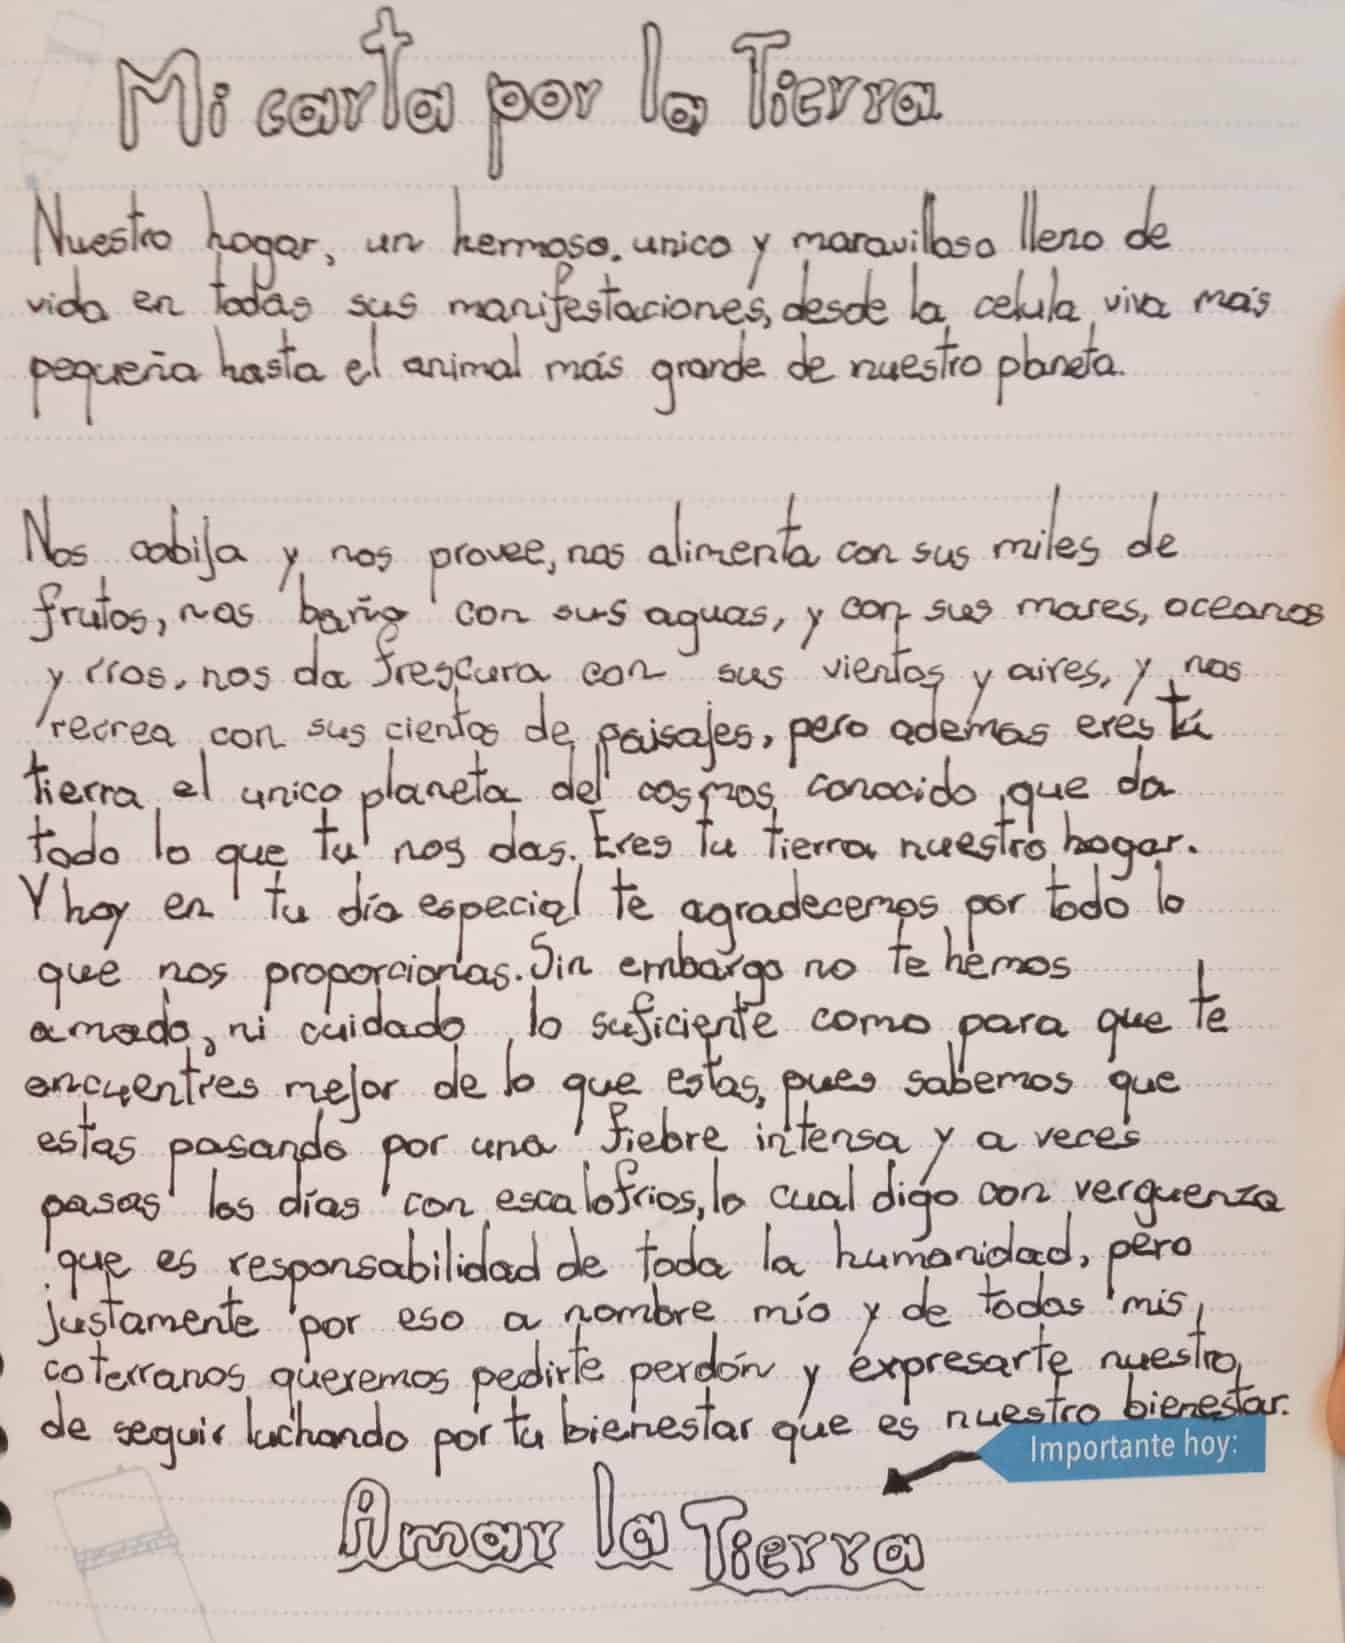 Mi carta por la Tierra
Nuestro hogar, un hermoso, unico y maravilloso lleno de
vida en todas sus manifestaciones, desde la celula viva más
pequeña hasta el animal más grande de nuestro planeta.
Nos cobija y nos provee, nos alimenta con sus miles de
frutos, nos baña con sus aguas, y con sus mares, oceanos
y rios, nos da frescura con sus vientos y aires, y nos
recrea con sus cientos de paisajes, pero ademas eres tú
tierra el unico planeta del cosmos conocido que da
todo lo que tu nos das. Eres tu tierra nuestro hogar.
Y hoy en tu día especial te agradecemos por todo lo
que nos proporcionas. Sin embargo no te hemos
amado, ni cuidado lo suficiente como para que te
encuentres mejor de lo que estas, pues sabemos que
estas pasando por una fiebre intensa y a veces
pasas los días con escalofrios, lo cual digo con verguenza
que es responsabilidad de toda la humanidad, pero
justamente por eso a nombre mío y de todos mis
coterranos queremos pedirte perdón y expresarte nuestro
de seguir luchando por tu bienestar que es nuestro bienestar.
Importante hoy:
Amar la Tierra